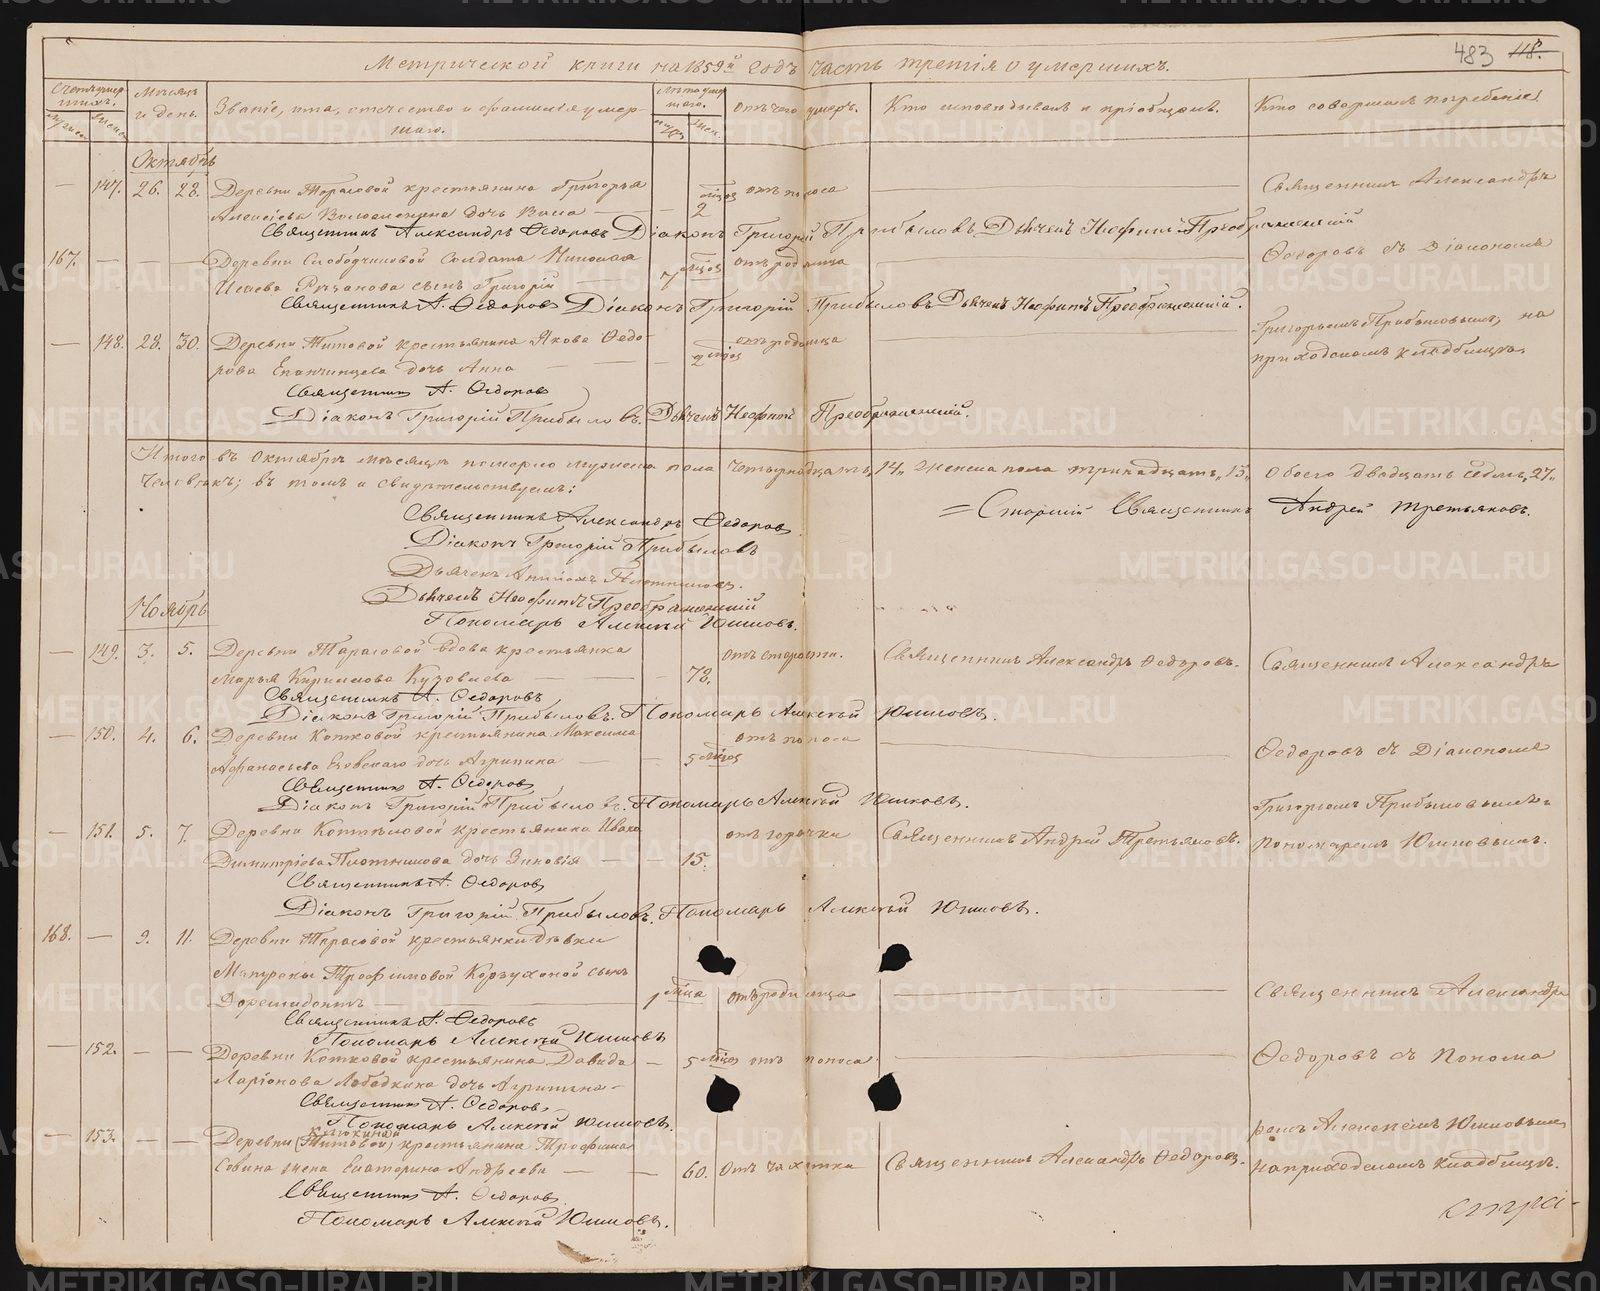 483 118.
Метрической книги на 1859й годъ часть третія о умершихъ.
Счетъ умершихъ. Мѣсяцъ и день. Званіе, имя, отчество и фамилія умершаго. Лѣта умершаго. Отъ чего умеръ. Кто исповѣдывалъ и пріобщалъ. Кто совершалъ погребеніе
Октябрь
— 147. 26. 28. Деревни Тарасовой крестьянина Григорья 2 мѣсяц отъ поноса Священникъ Александръ
Алексѣева дочь
Священникъ Александръ Ѳедоровъ Діаконъ Григорій Прибыловъ Дьячекъ Неофитъ Преображенскій
167. — — — Деревни Слободчиковой Солдата Николая 7 мѣсяц отъ родимца Ѳедоровъ съ Діакономъ
Исаева сынъ Григорій
Священникъ А. Ѳедоровъ Діаконъ Григорій Прибыловъ Дьячекъ Неофитъ Преображенскій.
Григорьемъ Прибыловымъ, на
— 148. 28. 30. Деревни Титовой крестьянина Якова Ѳедо- 2 мѣсяц отъ родимца
рова Епанчинцева дочь Анна приходскомъ кладбищѣ.
Священникъ А. Ѳедоровъ
Діаконъ Григорій Прибыловъ. Дьячекъ Неофитъ Преображенскій.
Итого въ Октябрѣ мѣсяцѣ померло мужеска пола четырнадцать, 14, женска пола тринадцать, 13, Обоего двадцать седмь, 27,
человѣкъ; въ томъ и свидѣтельствуемъ:
Священникъ Александръ Ѳедоровъ
= Старшій Священникъ Андрей Третьяковъ.
Діаконъ Григорій Прибыловъ
Дьячекъ Плотниковъ.
Дьячекъ Неофитъ Преображенскій
Пономарь Алексѣй Юшковъ.
Ноябрь
— 149. 3. 5. Деревни Тарасовой вдова крестьянка 78. отъ старости. Священникъ Александръ Ѳедоровъ. Священникъ Александръ
Марья Кирилова
Священникъ А. Ѳедоровъ
Діаконъ Григорій Прибыловъ. Пономарь Алексѣй Юшковъ.
— 150. 4. 6. Деревни Котковой крестьянина Максима отъ поноса
Афанасьева дочь Агрипина 5 мѣсяц Ѳедоровъ съ Діакономъ
Священникъ А. Ѳедоровъ
Діаконъ Григорій Прибыловъ. Пономарь Алексѣй Юшковъ. Григорьемъ Прибыловымъ и
— 151. 5. 7. Деревни крестьянина Ивана отъ горячки Священникъ Андрей Третьяковъ. Пономаремъ Юшковымъ.
Димитріева Плотникова дочь Зиновія 15.
Священникъ А. Ѳедоровъ
Діаконъ Григорій Прибыловъ. Пономарь Алексѣй Юшковъ.
168. — 9. 11. Деревни Тарасовой крестьянки дѣвки
Трофимовой сынъ
1 мѣсяца отъ родимца Священникъ Александръ
Священникъ А. Ѳедоровъ
Пономарь Алексѣй Юшковъ
— 152. — — Деревни Котковой крестьянина Давида 5 мѣсяц отъ поноса Ѳедоровъ съ Понома
Ларіонова Лебедкина дочь Агрипина
Священникъ А. Ѳедоровъ
Пономарь Алексѣй Юшковъ. ремъ Алексѣемъ Юшковымъ
Клюкиной
— 153. — — Деревни (Титовой) крестьянина Трофима
Савина жена Екатерина Андреева 60. Отъ чахотки Священникъ Александръ Ѳедоровъ. на приходскомъ кладбищѣ.
Священникъ А. Ѳедоровъ
Пономарь Алексѣй Юшковъ.
METRIKI.GASO-URAL.RU